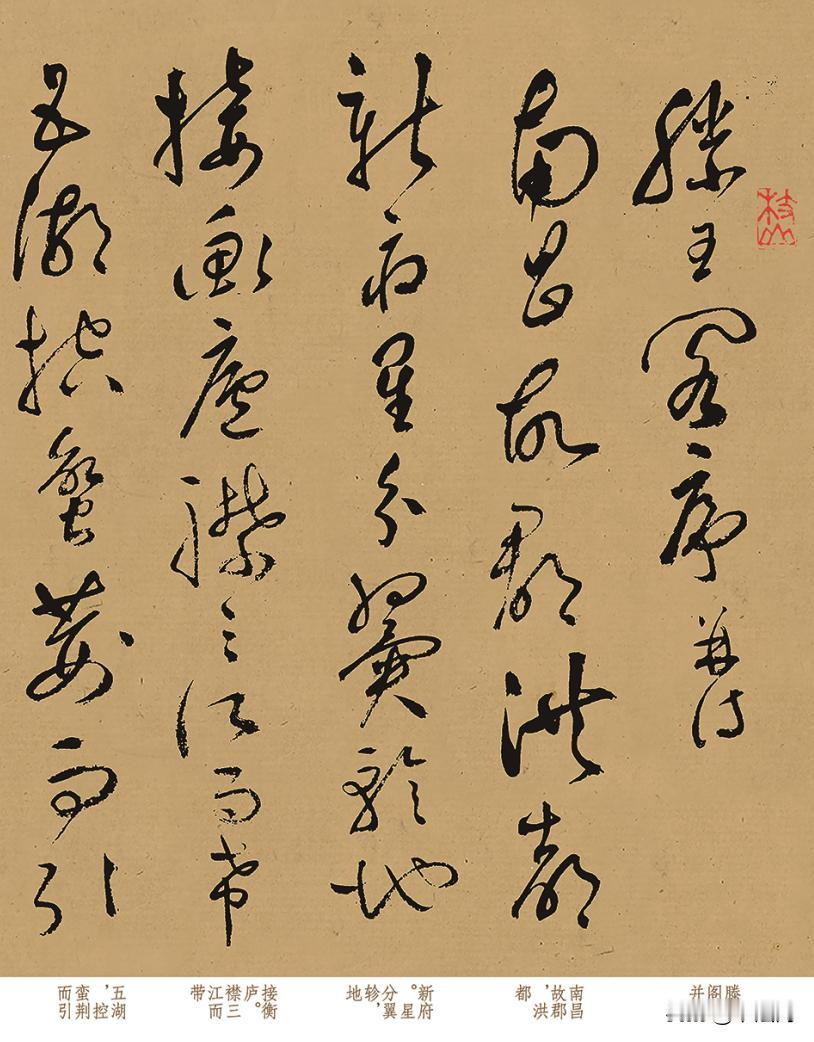 枝山
滕王閣序并詩
南昌故郡洪都
新府星分翼軫地
接衡廬襟三江而帶
五湖控蠻荊而引
滕
阁
并
南昌
故郡
，洪
都
新府
。星
分翼
轸，
地
接衡
庐。
襟三
江而
带
五湖
，控
蛮荆
而引